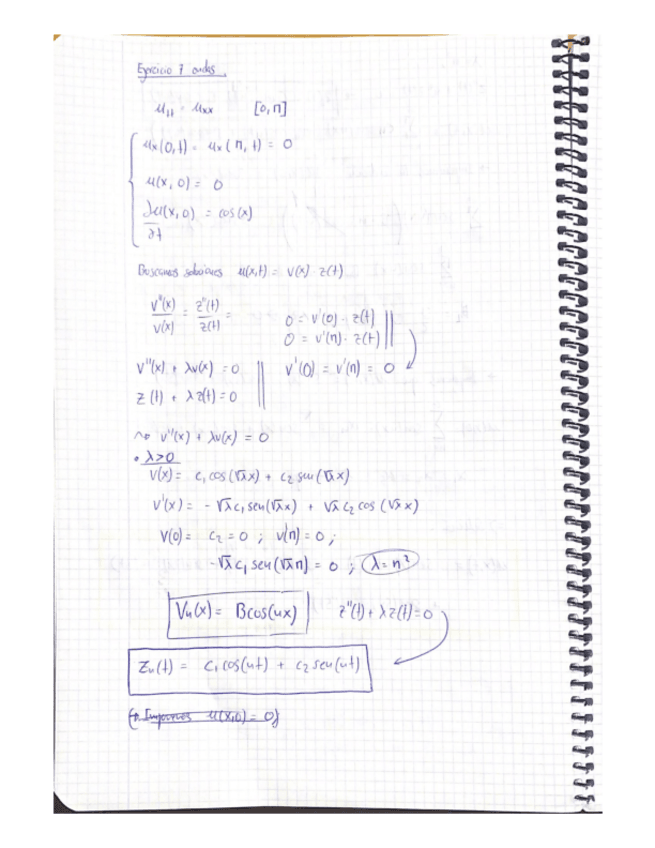 Ejercicio 7 ondas.
u_tt = u_xx [0, π]
u_x(0,t) = u_x(π, t) = 0
u(x, 0) = 0
∂u(x,0)/∂t = cos(x)
Buscamos soluciones u(x,t) = v(x) z(t)
v''(x)/v(x) = z''(t)/z(t) =
0 = v'(0) · z(t)
0 = v'(π) · z(t)
v''(x) + λv(x) = 0 v'(0) = v'(π) = 0
z (t) + λ z(t) = 0
⇝ v''(x) + λv(x) = 0
• λ>0
v(x) = c₁ cos(√λx) + c₂ sen(√λx)
v'(x) = - √λ c₁ sen(√λx) + √λ c₂ cos (√λx)
v(0) = c₂ = 0 ; v'(π) = 0 ;
-√λ c₁ sen(√λπ) = 0 ; λ = n²
Vn(x) = B cos(nx) z''(t) + λ z(t) = 0
Zn(t) = c₁ cos(nt) + c₂ sen(nt)
(• Imponemos u(x,0) = 0)